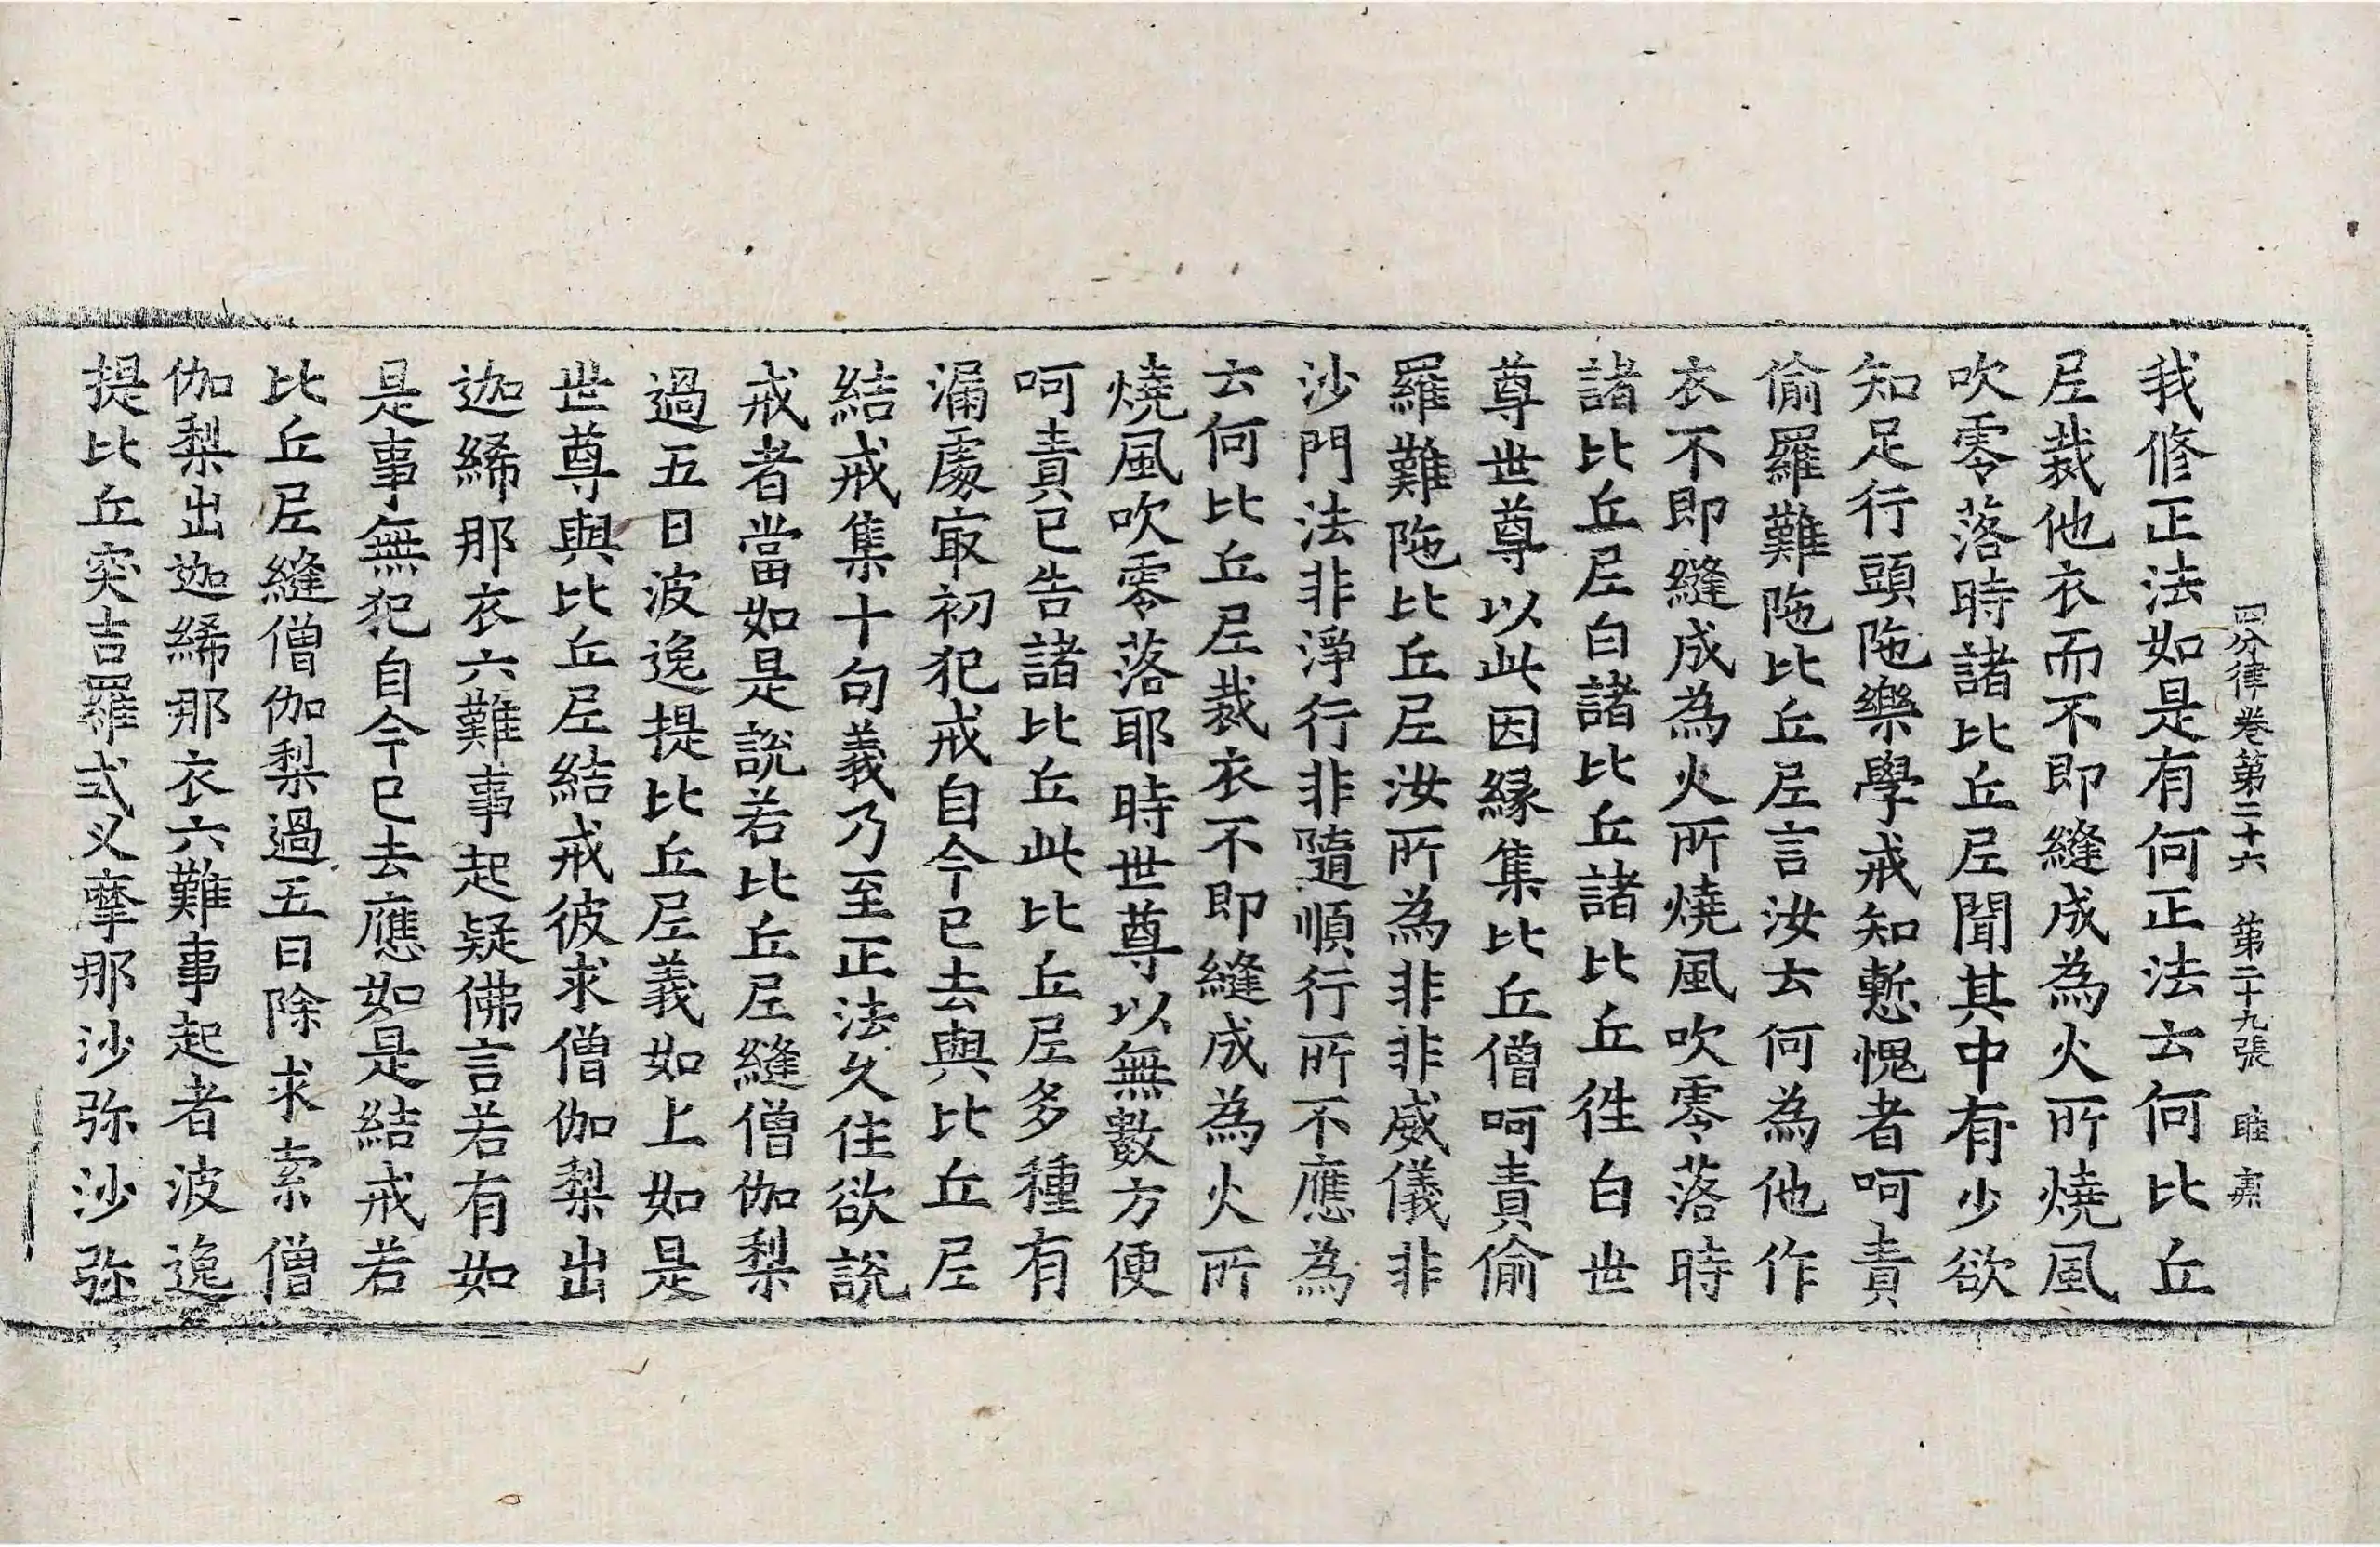 四分律卷第二十六 第二十九張 睢
我修正法如是有何正法云何比丘
尼裁他衣而不即縫成為火所燒風
吹零落時諸比丘尼聞其中有少欲
知足行頭陁樂學戒知慙愧者呵責
偷羅難陁比丘尼言汝云何為他作
衣不即縫成為火所燒風吹零落時
諸比丘尼白諸比丘諸比丘徃白世
尊世尊以此因緣集比丘僧呵責偷
羅難陁比丘尼汝所為非非威儀非
沙門法非淨行非隨順行所不應為
云何比丘尼裁衣不即縫成為火所
燒風吹零落耶時世尊以無數方便
呵責已告諸比丘此比丘尼多種有
漏處冣初犯戒自今已去與比丘尼
結戒集十句義乃至正法久住欲說
戒者當如是說若比丘尼縫僧伽梨
過五日波逸提比丘尼義如上如是
世尊與比丘尼結戒彼求僧伽梨出
迦絺那衣六難事起疑佛言若有如
是事無犯自今已去應如是結戒若
比丘尼縫僧伽梨過五日除求索僧
伽梨出迦絺那衣六難事起者波逸
提比丘突吉羅式叉摩那沙弥沙弥